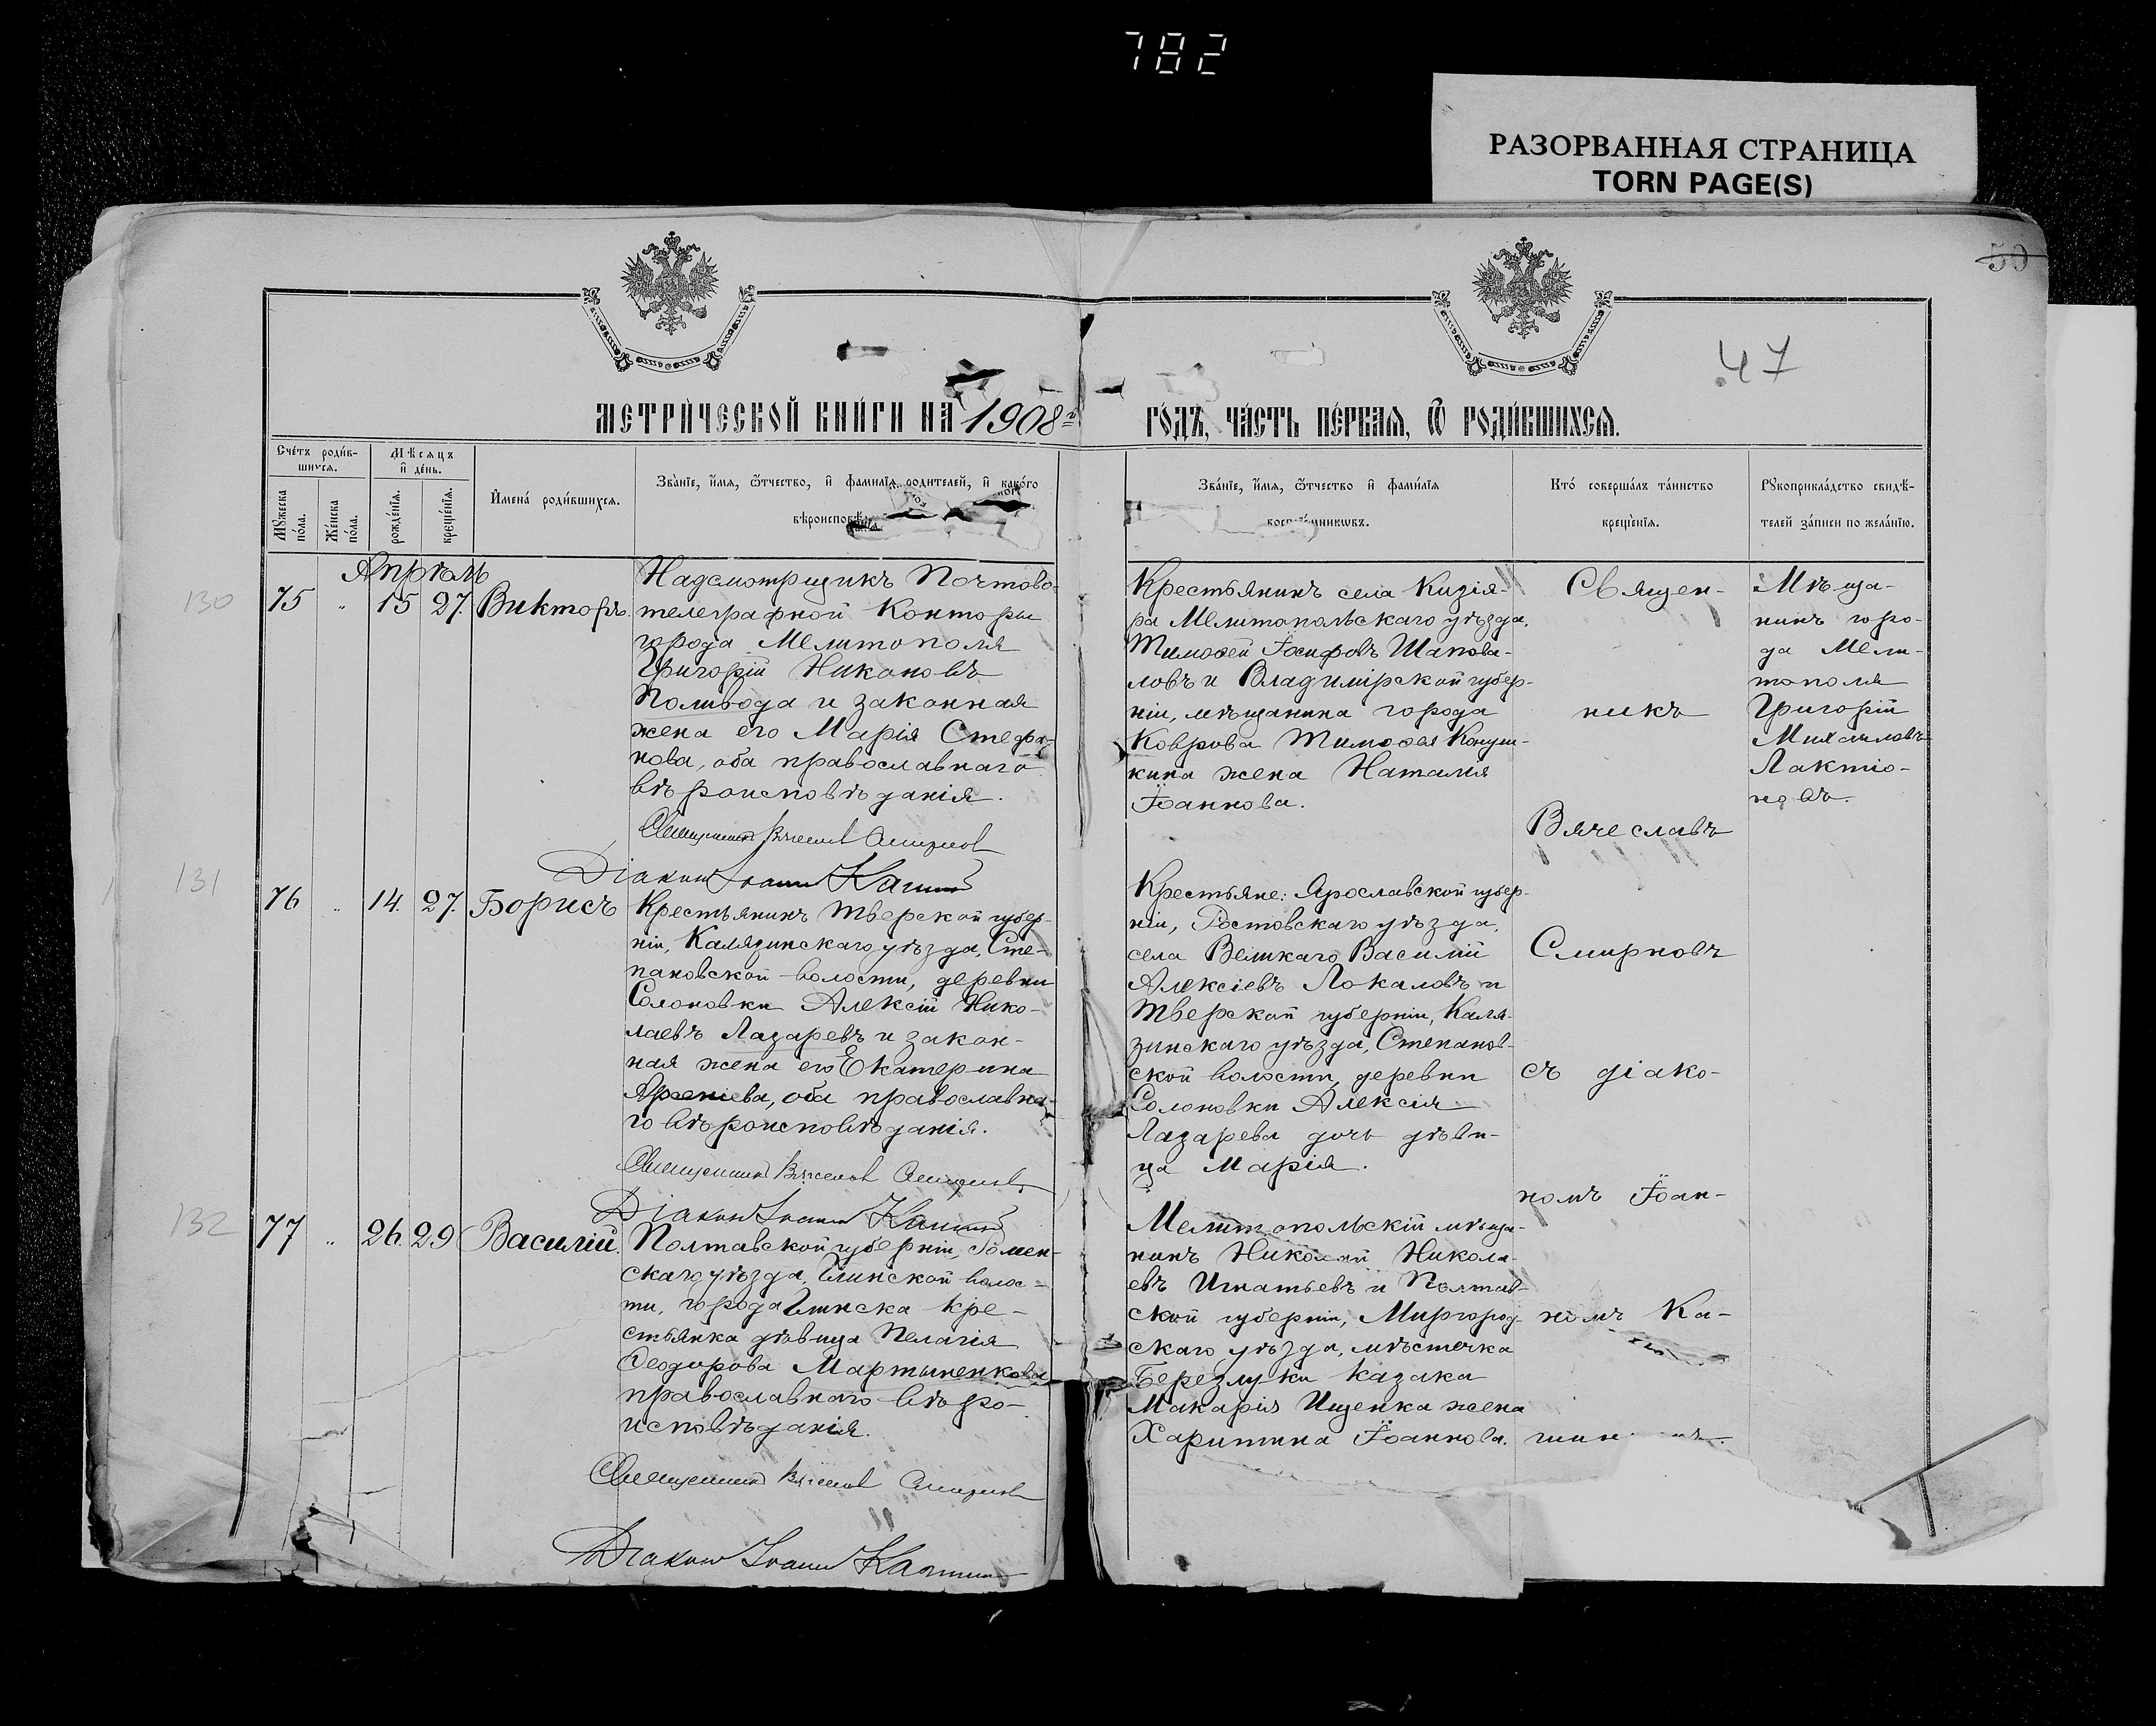 782
РАЗОРВАННАЯ СТРАНИЦА
TORN PAGE(S)
50
47
МЕТРИ́ЧЕСКОЙ КНИ́ГИ НА 1908 г.
ГО́ДЪ, ЧА́СТЬ ПЕ́РВАЯ, Ѿ РОДИ́ВШИХСЯ.
Сче́тъ роди́в-
шихся.
Мѣ́сяцъ
и̂ де́нь.
Мꙋжеска по́ла.
Же́нска по́ла.
рожде́нїя.
креще́нїя.
И̂мена́ роди́вшихся.
Зва́нїе, и́мя, ѻ́тчество, и̂ фамилїя родителей, и̂ како́го
вѣроисповѣ
Зва́нїе, и́мя, ѻ́тчество и̂ фами́лїя
воспрїе́мниковъ.
Кто́ соверша́лъ та́инство
креще́нїя.
Рꙋкоприкла́дство свидѣ́-
телей за́писи по жела́нїю.
Апрѣль
130
75 " 15 27. Викторъ.
Надсмотрщикъ Почтово-
телеграфной Конторы
города Мелитополя
Григорій Никоновъ
Поливода и законная
жена его Марія Стефа-
нова, оба православнаго
вѣроисповѣданія.
Священникъ Вячеслав Смирнов
Діакон Іоанн Кашин
Крестьянинъ села Кизія-
ра Мелитопольскаго уѣзда,
Тимоѳей Іосифовъ Шапова-
ловъ и Владимірской губер-
ніи, мѣщанина города
Коврова Тимоѳея
кина жена Наталія
Іоаннова.
Священ-
никъ
Вячеславъ
Смирновъ
съ діако-
номъ Іоан-
номъ Ка-
Мѣща-
нинъ горо-
да Мели-
тополя
Григорій
Михаиловъ
Лактіо-
новъ.
131
76 " 14. 27. Борисъ
Крестьянинъ Тверской губер-
ніи, Калязинскаго уѣзда, Сте-
пановской волости, деревни
Солоновки Алексій Нико-
лаевъ Лазаревъ и закон-
ная жена его Екатерина
Арсеніева, оба православна-
го вѣроисповѣданія.
Священникъ Вячеслав Смирнов
Діакон Іоанн Кашин
Крестьяне: Ярославской губер-
ніи, Ростовскаго уѣзда,
села Великаго Василій
Алексіевъ Локаловъ и
Тверской губерніи, Каля-
зинскаго уѣзда, Степанов-
ской волости, деревни
Солоновки Алексія
Лазарева дочь дѣви-
ца Марія.
132
77 " 26. 29 Василій.
Полтавской губерніи, Ромен-
скаго уѣзда, Глинской волос-
ти, города Глинска кре-
стьянка дѣвица Пелагія
Ѳеодорова Мартыненкова
православнаго вѣро-
исповѣданія.
Священникъ Вячеслав Смирнов
Діакон Іоанн Кашин
Мелитопольскій мѣща-
нинъ Николай Никола-
евъ Игнатьевъ и Полтав-
ской губерніи, Миргород-
скаго уѣзда, мѣстечка
Березлуки казака
Макарія Ищенка жена
Харитина Іоаннова.